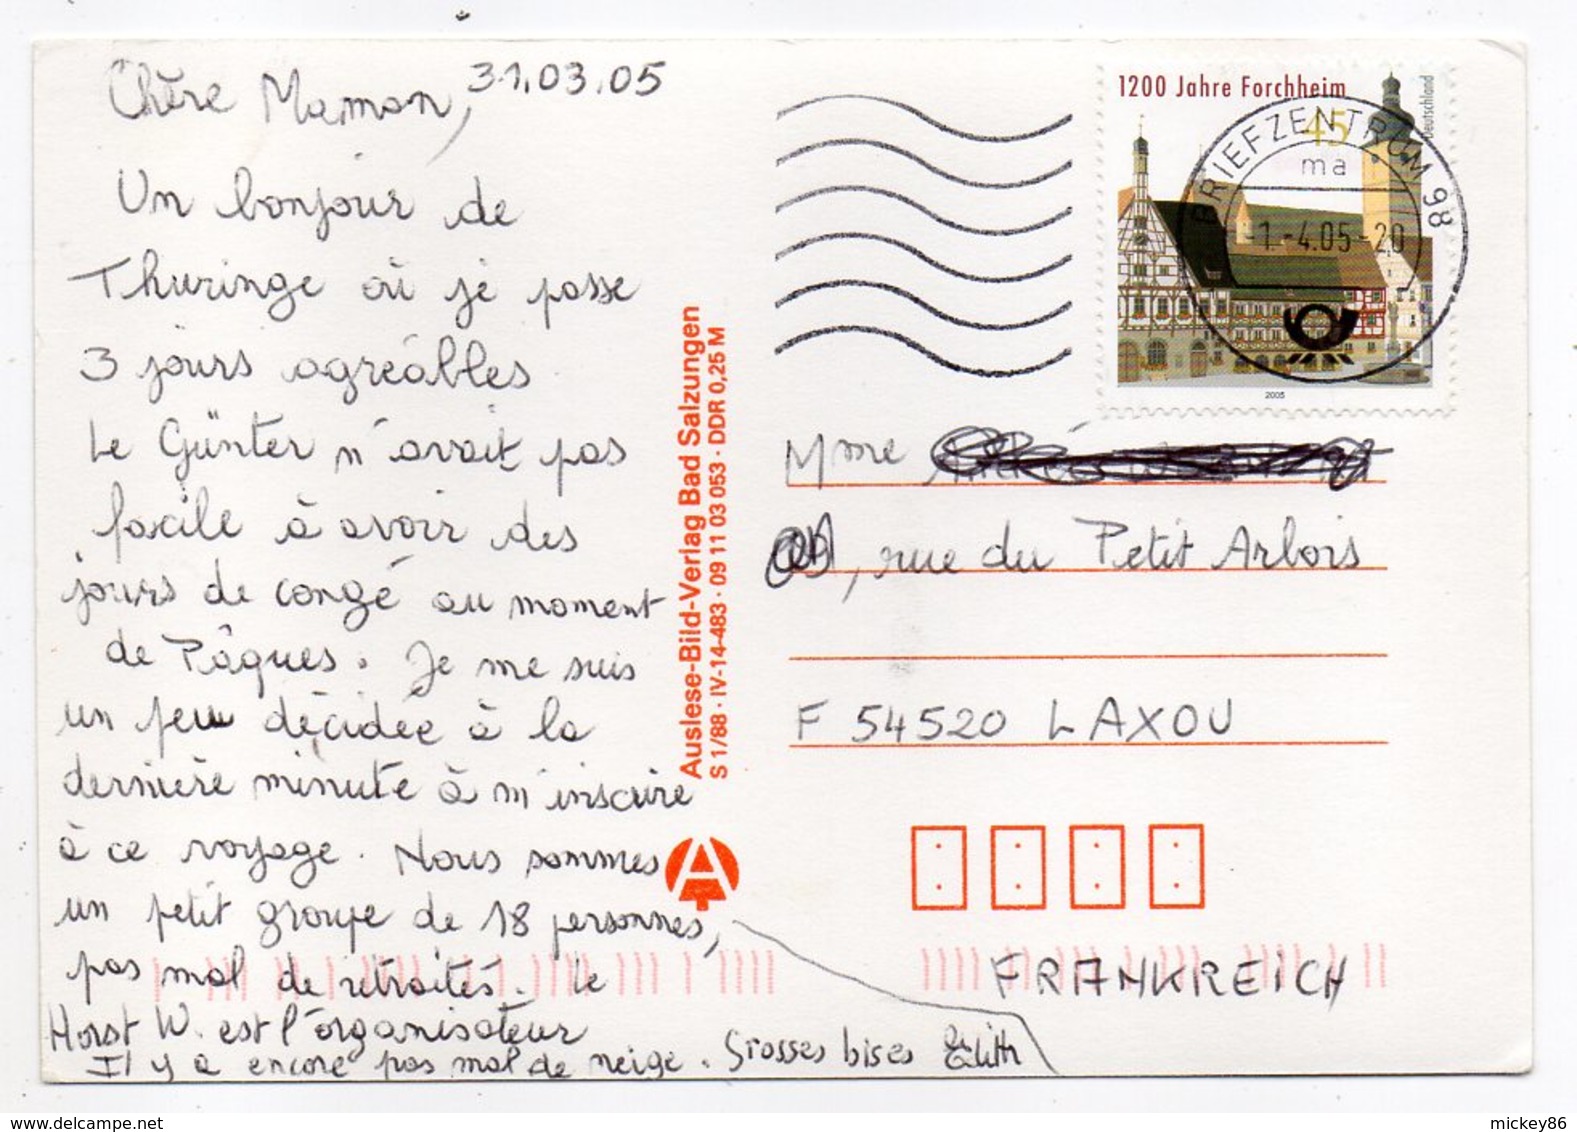 Chère Maman, 31.03.05
Un bonjour de
Thuringe où je passe
3 jours agréables
Le Günter n'avait pas
facile à avoir des
jours de congé au moment
de Pâques. Je me suis
un peu décidée à la
dernière minute à m'inscrire
à ce voyage. Nous sommes
un petit groupe de 18 personnes,
pas mal de retraités. Le
Horst W. est l'organisateur
Il y a encore pas mal de neige. Grosses bises Edith
Auslese-Bild-Verlag Bad Salzungen
S 1/88 · IV-14-483 · 09 11 03 053 · DDR 0,25 M
A
1200 Jahre Forchheim
45
Deutschland
2005
BRIEFZENTRUM 98
ma
-1.-4.05-20
Mme
, rue du Petit Arbois
F 54520 LAXOU
FRANKREICH
delcampe.net
mickey86